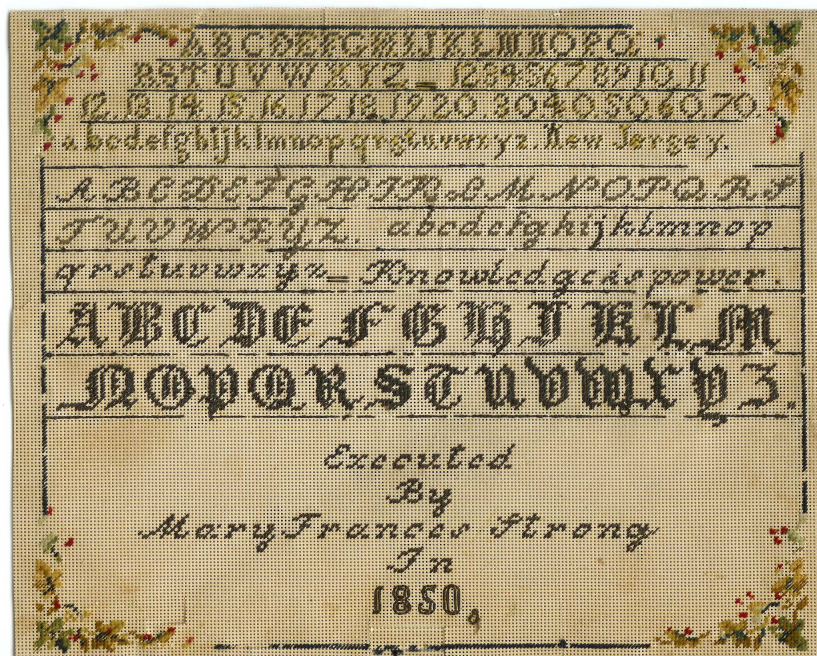 ABCDEFGHIJKLMNOPQ
RSTUVWXYZ_ 123456789 10, 11
12, 13, 14, 15, 16, 17, 18, 19, 20. 30 40. 50. 60. 70.
abcdefghijklmnopqrstuvwxyz. New Jersey.
ABCDEFGHIKLMNOPQRS
TUVWXYZ. abcdefghijklmnop
qrstuvwxyz= Knowledge is power.
ABCDEFGHIKLM
NOPQRSTUVWXYZ.
Executed
By
Mary Frances Strong
In
1850,